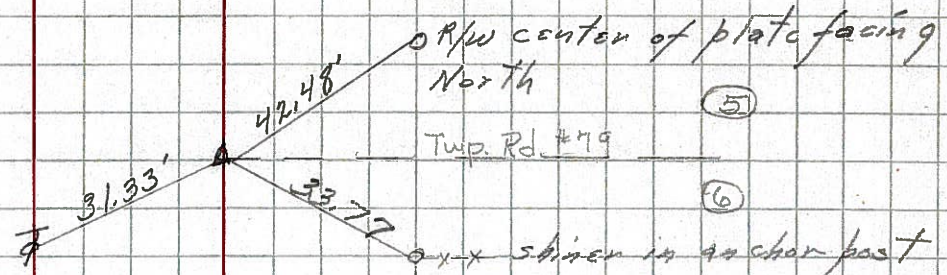 R/W center of plate facing
North
42.48'
5
Twp. Rd. #79
31.33'
33.77
6
x-x shiner in anchor post